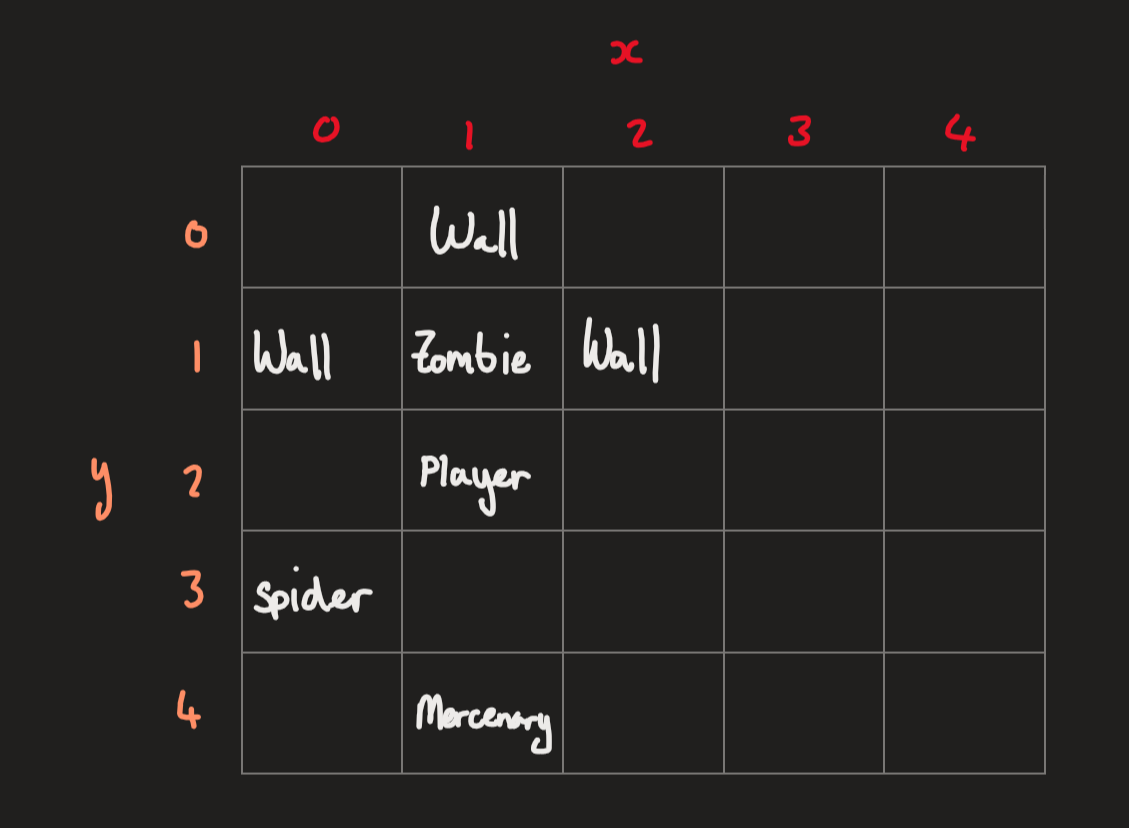 x
0 1 2 3 4
0 Wall
1 Wall Zombie Wall
y 2 Player
3 Spider
4 Mercenary